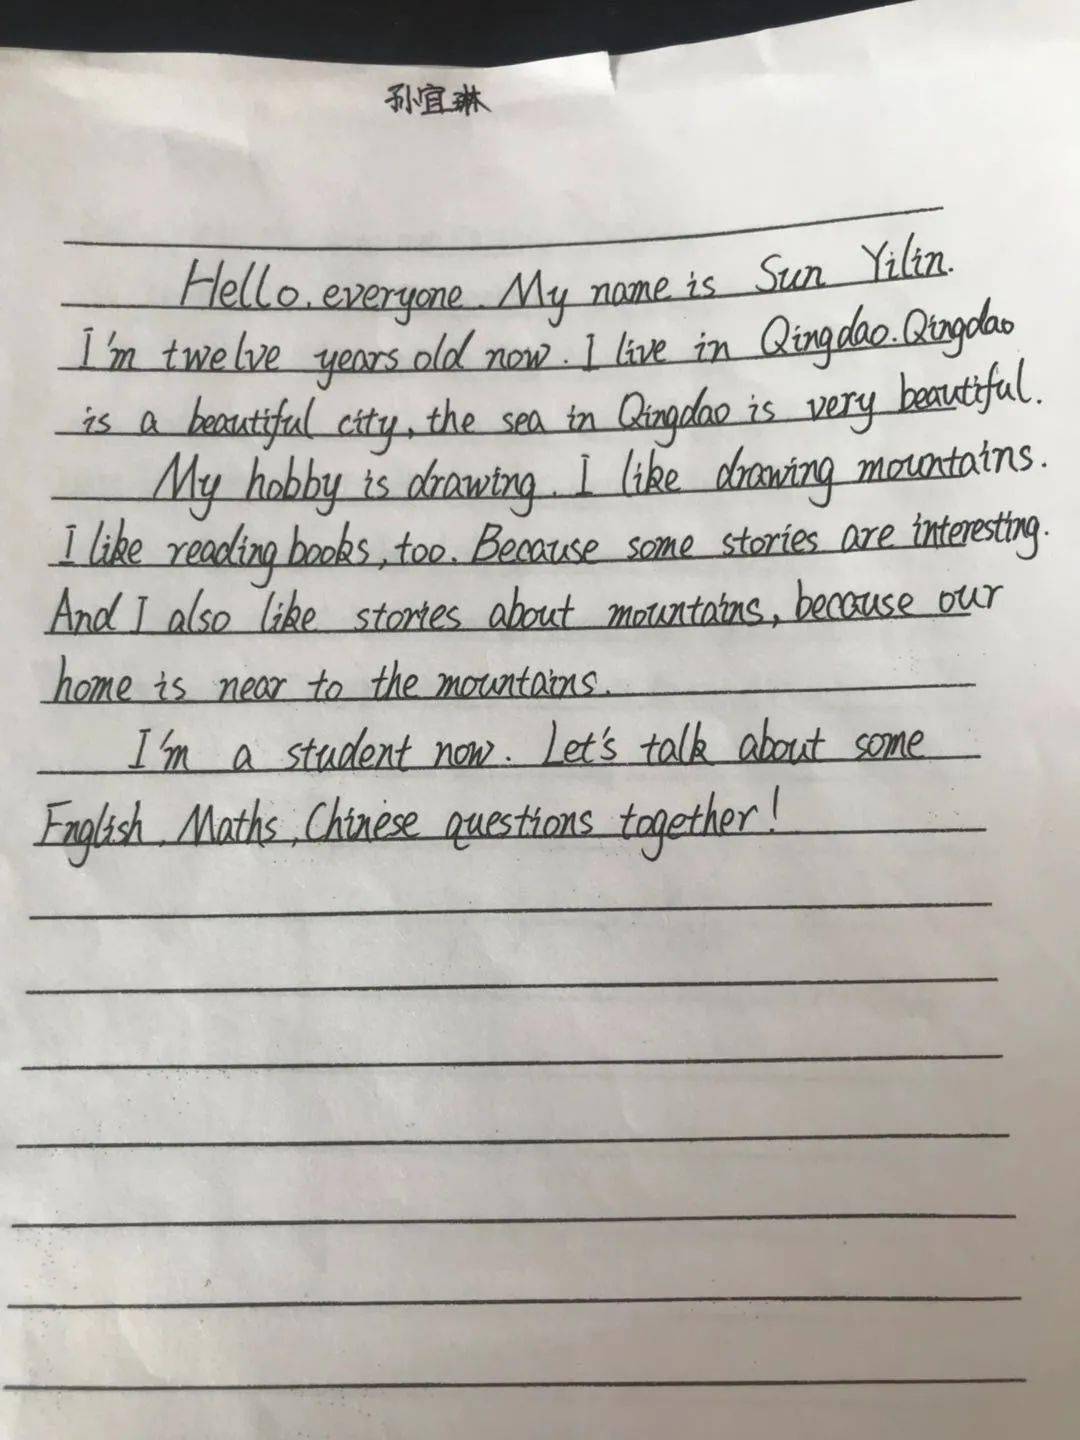 孙宜琳
Hello, everyone. My name is Sun Yilin.
I'm twelve years old now. I live in Qingdao. Qingdao
is a beautiful city, the sea in Qingdao is very beautiful.
My hobby is drawing. I like drawing mountains.
I like reading books, too. Because some stories are interesting.
And I also like stories about mountains, because our
home is near to the mountains.
I'm a student now. Let's talk about some
English, Maths, Chinese questions together!